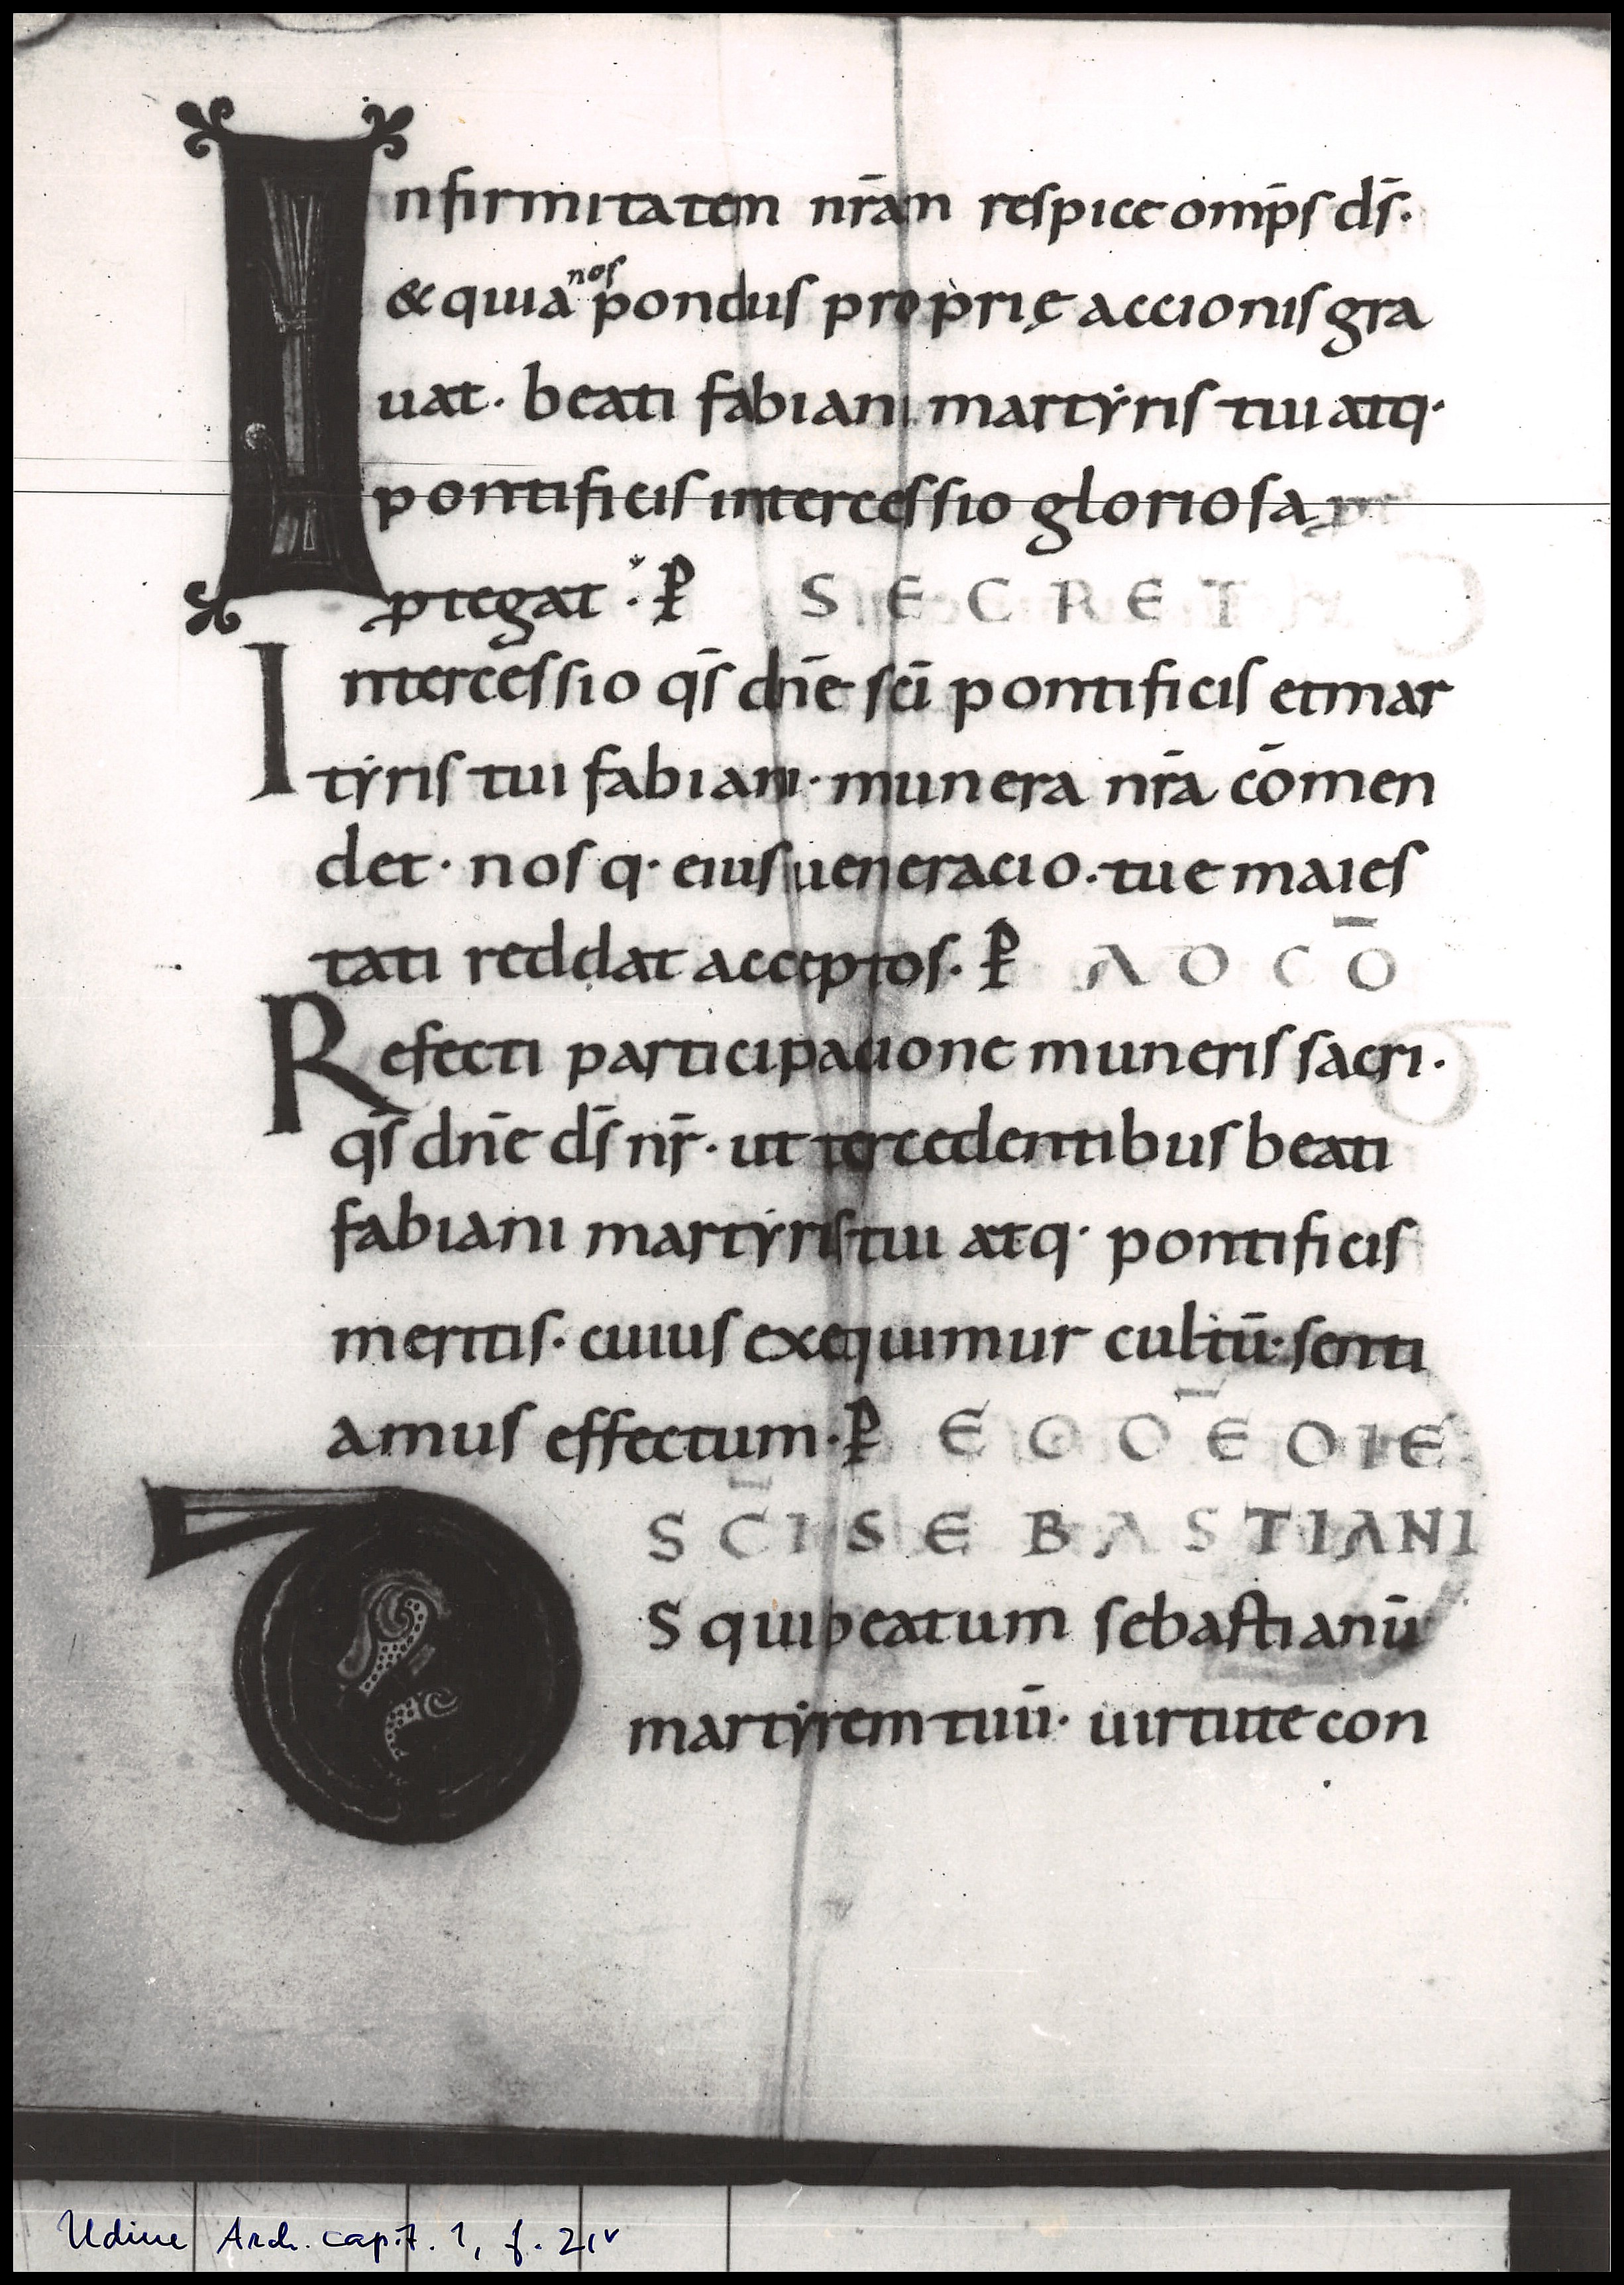 Infirmitatem nr̄am respice omp̄s ds̄·
& quia nos pondus proprię accionis gra
uat· beati fabiani martẏris tui atq·
pontificis intercessio gloriosa
ꝓtegat· P SECRET
Intercessio qs̄ dn̄e sc̄i pontificis et mar
tẏris tui fabiani· munera nr̄a cōmen
det· nosq· eius ueneracio· tue maies
tati reddat acceptos· P AD CŌ
Refecti participacione muneris sacri·
qs̄ dn̄e ds̄ nr̄· ut tercedentibus beati
fabiani martẏris tui atq· pontificis
meritis· cuius exequimur cultū· senti
amus effectum· P EODĒ DIE
SC̄I SEBASTIANI
DS qui beatum sebastianū
martẏrem tuū· uirtute con
Udine Arch. capit. 1, f. 21v